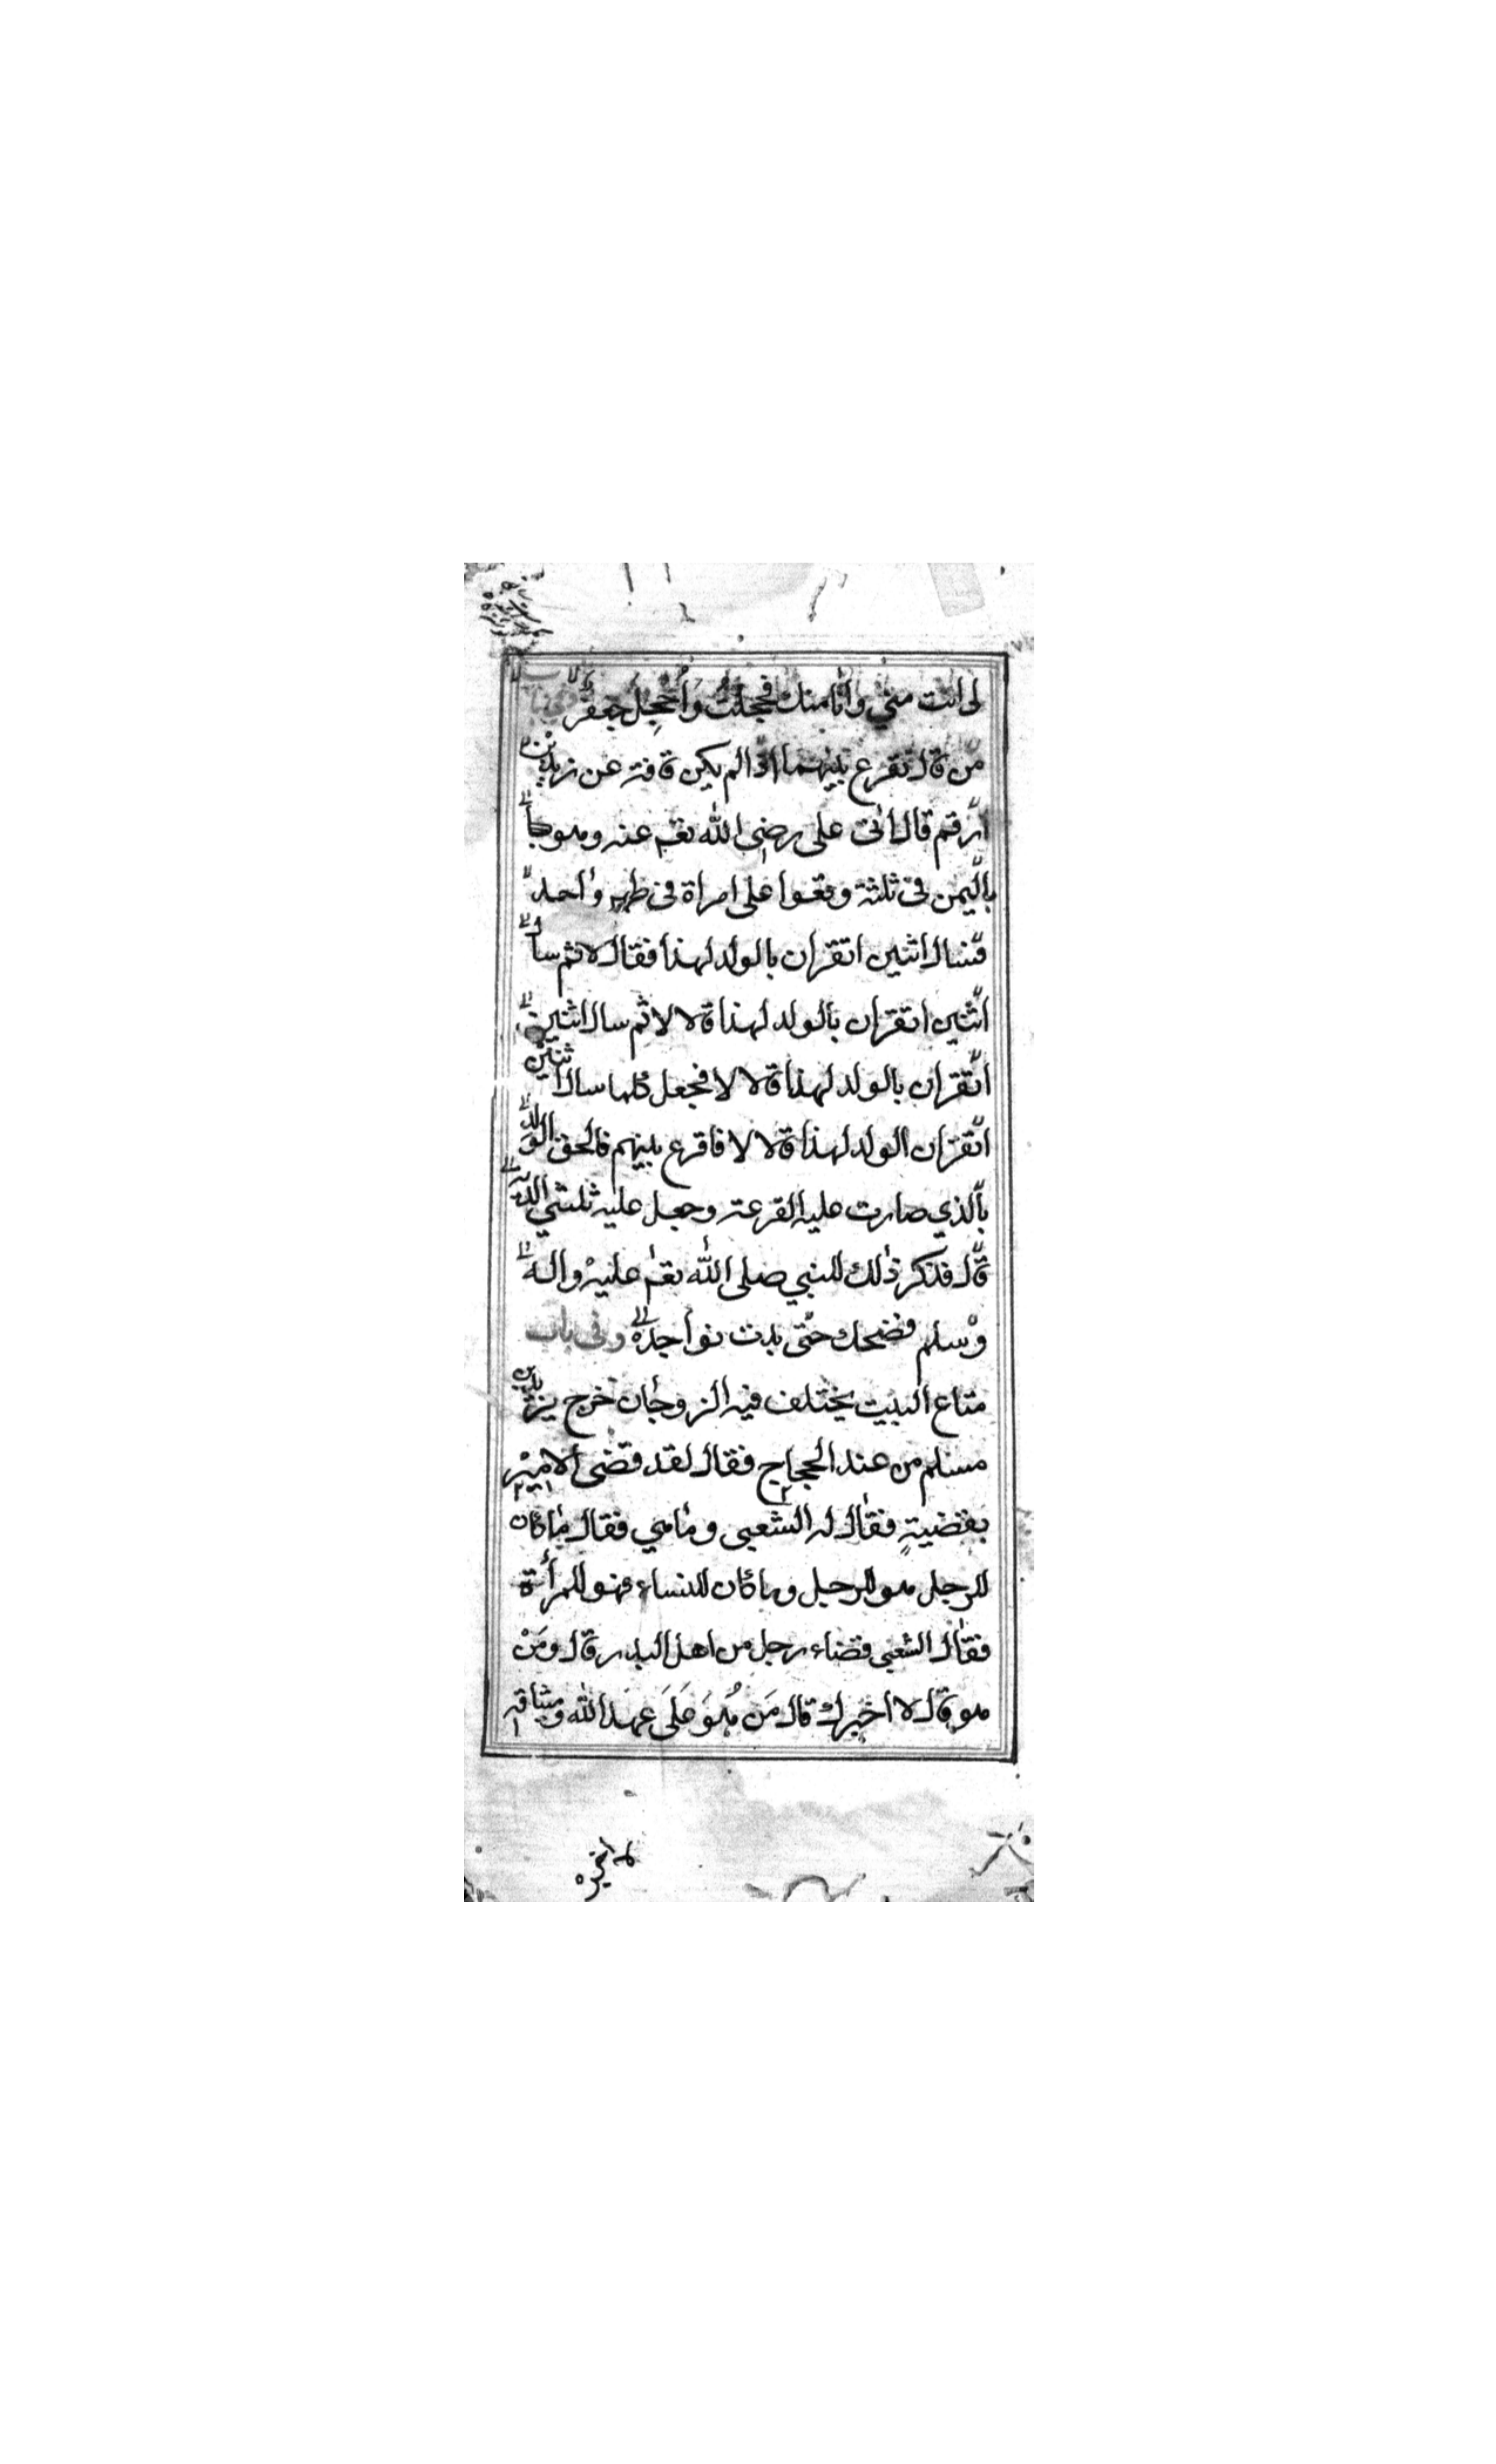 لى انت مني وانا منك فحجلت وأحجل جعفر وفي باب
من قال يقرع بينهما اذا لم يكن قافة عن زيد بن
ارقم قال اتى علي رضي الله تعم عنه وهو
باليمن في ثلثة وقعوا على امراة في طهر واحد
فسال اثنين اتقران بالولد لهذا فقال لا ثم سأل
اثنين اتقران بالولد لهذا قالا لا ثم سال اثنين
اتقران بالولد لهذا قالا لا فجعل كلما سال اثنين
اتقران الولد لهذا قالا لا فاقرع بينهم فالحق الولد
بالذي صارت عليه القرعة وجعل عليه ثلثي الدية
قال فذكر ذلك للنبي صلى الله تعم عليه واله
وسلم فضحك حتى بدت نواجذه وفي باب
متاع البيت يختلف فيه الزوجان خرج يزيد بن
مسلم من عند الحجاج فقال لقد قضى الامير
بقضية فقال له الشعبي وما هي فقال ما كان
للرجل هو للرجل وما كان للنساء فهو للمرأة
فقال الشعبي قضاء رجل من اهل البدر قال ومن
هو قال لا اخبرك قال من هو على عهد الله وميثاقه